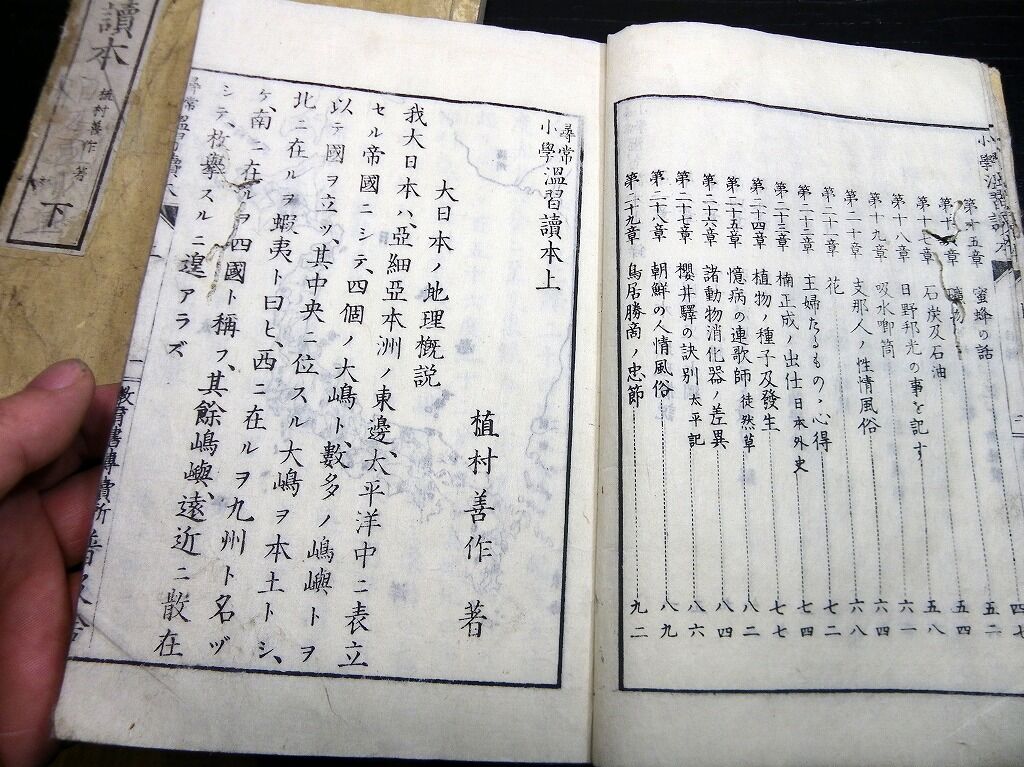 小學溫習讀本
第十五章 蜜蜂の話 四七
第十六章 礦物 五二
第十七章 石炭及石油 五四
第十八章 日野邦光の事を記す 五八
第十九章 吸水喞筒 六一
第二十章 支那人ノ性情風俗 六四
第二十一章 花 六八
第二十二章 主婦たるもの、心得 七二
第二十三章 楠正成ノ出仕 日本外史 七四
第二十四章 植物ノ種子及發生 七七
第二十五章 憶病の連歌師 徒然草 八二
第二十六章 諸動物消化器ノ差異 八四
第二十七章 櫻井驛の訣別 太平記 八六
第二十八章 朝鮮の人情風俗 八九
第二十九章 鳥居勝商ノ忠節 九二
尋常小學溫習讀本上
植村善作 著
大日本ノ地理概説
我大日本ハ、亞細亞本洲ノ東邊、太平洋中ニ表立
セル帝國ニシテ、四個ノ大嶋ト、數多ノ嶋嶼トヲ
以テ國ヲ立ツ、其中央ニ位スル大嶋ヲ本土トシ、
北ニ在ルヲ蝦夷ト曰ヒ、西ニ在ルヲ九州ト名ヅ
ケ、南ニ在ルヲ四國ト稱フ、其餘嶋嶼、遠近ニ散在
シテ、枚擧スルニ遑アラズ
尋常溫習讀本
一
教育書專賣所 普及舍
讀本
植村善作 著
下